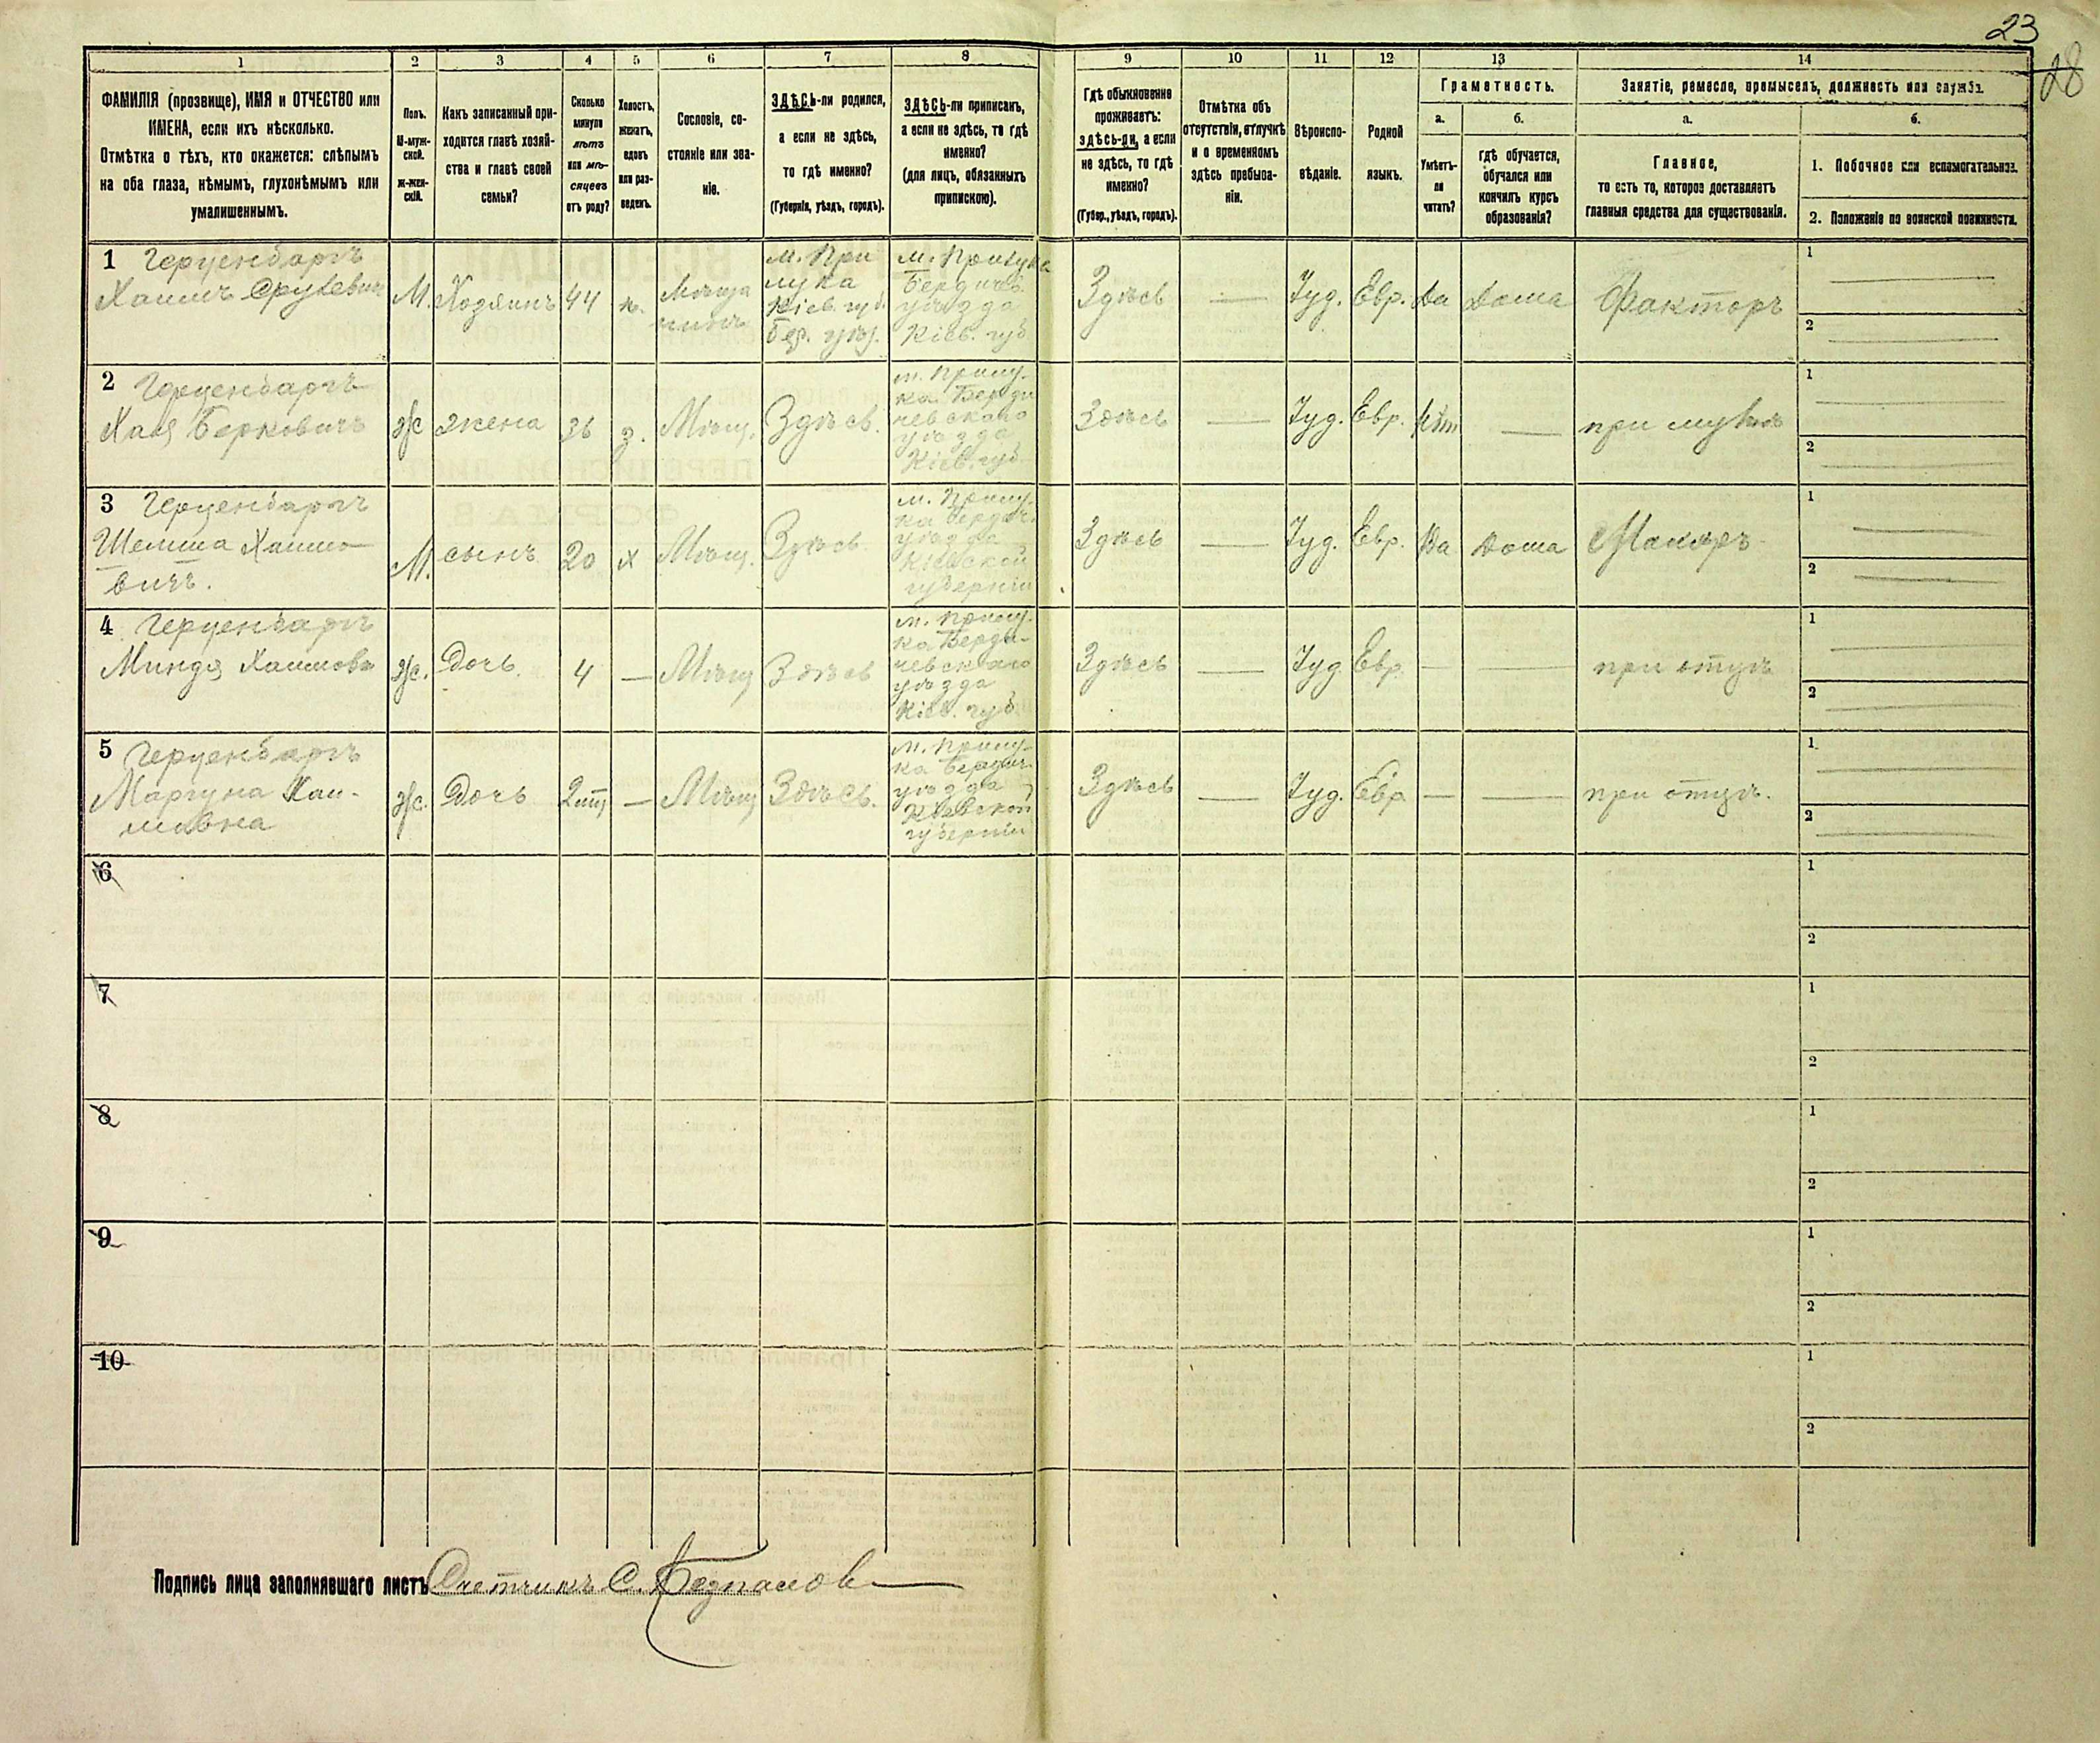 23
28
1
2
3
4
5
6
7
8
9
10
11
12
13
14
ФАМИЛІЯ (прозвище), ИМЯ и ОТЧЕСТВО или
ИМЕНА, если ихъ нѣсколько.
Отмѣтка о тѣхъ, кто окажется: слѣпымъ
на оба глаза, нѣмымъ, глухонѣмымъ или
умалишеннымъ.
Полъ.
М-муж-
ской.
ж-жен-
скій.
Какъ записанный при-
ходится главѣ хозяй-
ства и главѣ своей
семьи?
Сколько
минуло
лѣтъ
или мѣ-
сяцевъ
отъ роду?
Холостъ,
женатъ,
вдовъ
или раз-
веденъ.
Сословіе, со-
стояніе или зва-
ніе.
ЗДѢСЬ-ли родился,
а если не здѣсь,
то гдѣ именно?
(Губернія, уѣздъ, городъ).
ЗДѢСЬ-ли приписанъ,
а если не здѣсь, то гдѣ
именно?
(для лицъ, обязанныхъ
припискою).
Гдѣ обыкновенно
проживаетъ:
здѣсь-ли, а если
не здѣсь, то гдѣ
именно?
(Губер., уѣздъ, городъ).
Отмѣтка объ
отсутствіи, отлучкѣ
и о временномъ
здѣсь пребыва-
ніи.
Вѣроиспо-
вѣданіе.
Родной
языкъ.
Грамотность.
а.
Умѣетъ-
ли
читать?
б.
гдѣ обучается,
обучался или
кончилъ курсъ
образованія?
Занятіе, ремесло, промыселъ, должность или служба.
а.
Главное,
то есть то, которое доставляетъ
главныя средства для существованія.
б.
1. Побочное или вспомогательное.
2. Положеніе по воинской повинности.
1 Герценбаргъ
Хаимъ Срулевичъ
М. Хозяинъ 44 ж.
Мѣща
нинъ
м. При
лука
Кіев. губ.
Бер. уѣз.
м. Прилука
Бердич.
уѣзда
Кіев. губ.
Здѣсь — Іуд. Евр. Да Дома Факторъ
1
2
2 Герценбаргъ
Хая Берковичъ
ж жена 36 з. Мѣщ. Здѣсь.
м. Прилу-
ка Берди
чевскаго
уѣзда
Кіев. губ.
Здѣсь — Іуд. Евр. Нѣт — при мужѣ
1
2
3 Герценбаргъ
Шемша Хаимо-
вичъ.
М. сынъ 20 х Мѣщ. Здѣсь
м. Прилу-
ка Бердич.
уѣзда
Кіевской
губерніи
Здѣсь — Іуд. Евр. Да Дома
1
2
4 Герценбаргъ
Миндя Хаимова
ж. Дочь. 4 — Мѣщ Здѣсь
м. Прилу-
ка Берди-
чевскаго
уѣзда
Кіев. губ.
Здѣсь — Іуд. Евр. — — при отцѣ
1
2
5 Герценбаргъ
Хаи-
мовна
ж. Дочь — Мѣщ Здѣсь.
м. Прилу-
ка Бердич.
уѣзда
Кіевской
губерніи
Здѣсь — Іуд. Евр — — при отцѣ.
1
2
6
1
2
7
1
2
8
1
2
9
1
2
10
1
2
Подпись лица заполнявшаго листъ Счетчикъ С.